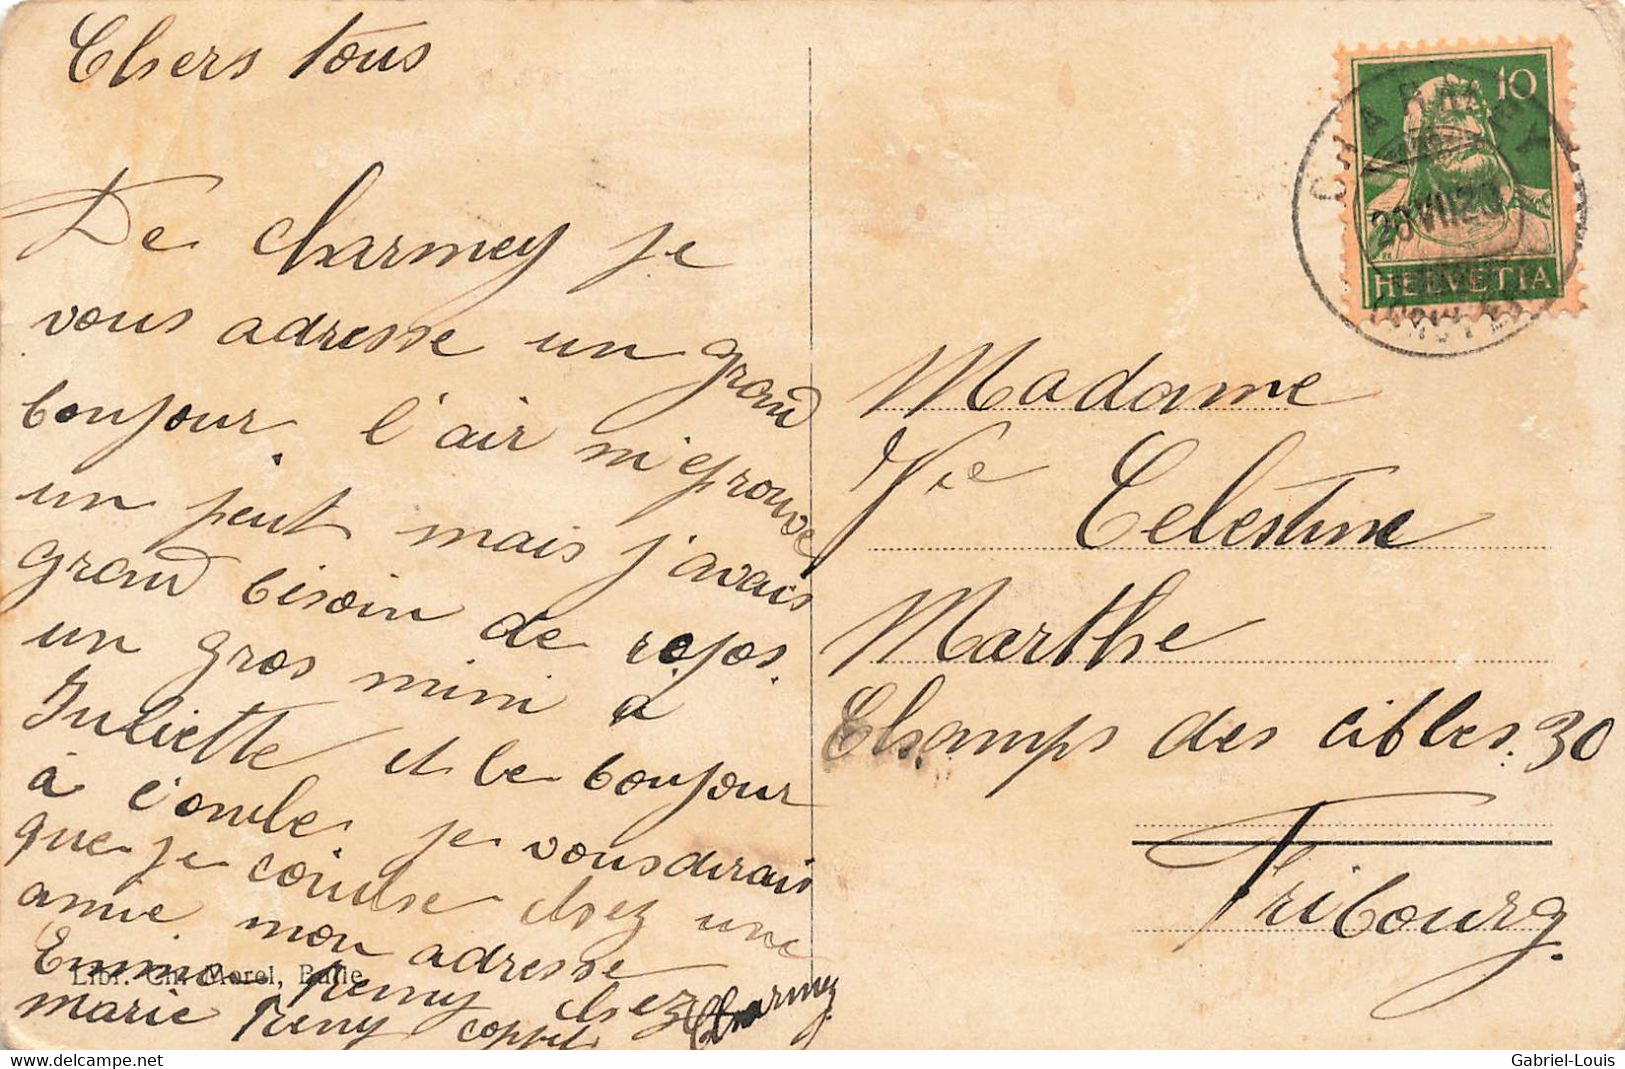 Chers tous
De charmey je
vous adresse un grand
bonjour. l'air m'eprouve
un peut mais j'avais
grand besoin de repos.
un gros mini à
Juliette et le bonjour
à l'ombe. je vous dirais
que je couche chez une
amie. mon adresse
Emma Remy chez
marie Remy Charmey
Libr. Ch. Morel, Bulle
CHARMEY
20 VII 20
10
HELVETIA
Madame
Vve Celestine
Marthe
Champs des cibles. 30
Fribourg.
https://www.delcampe.net
Gabriel-Louis